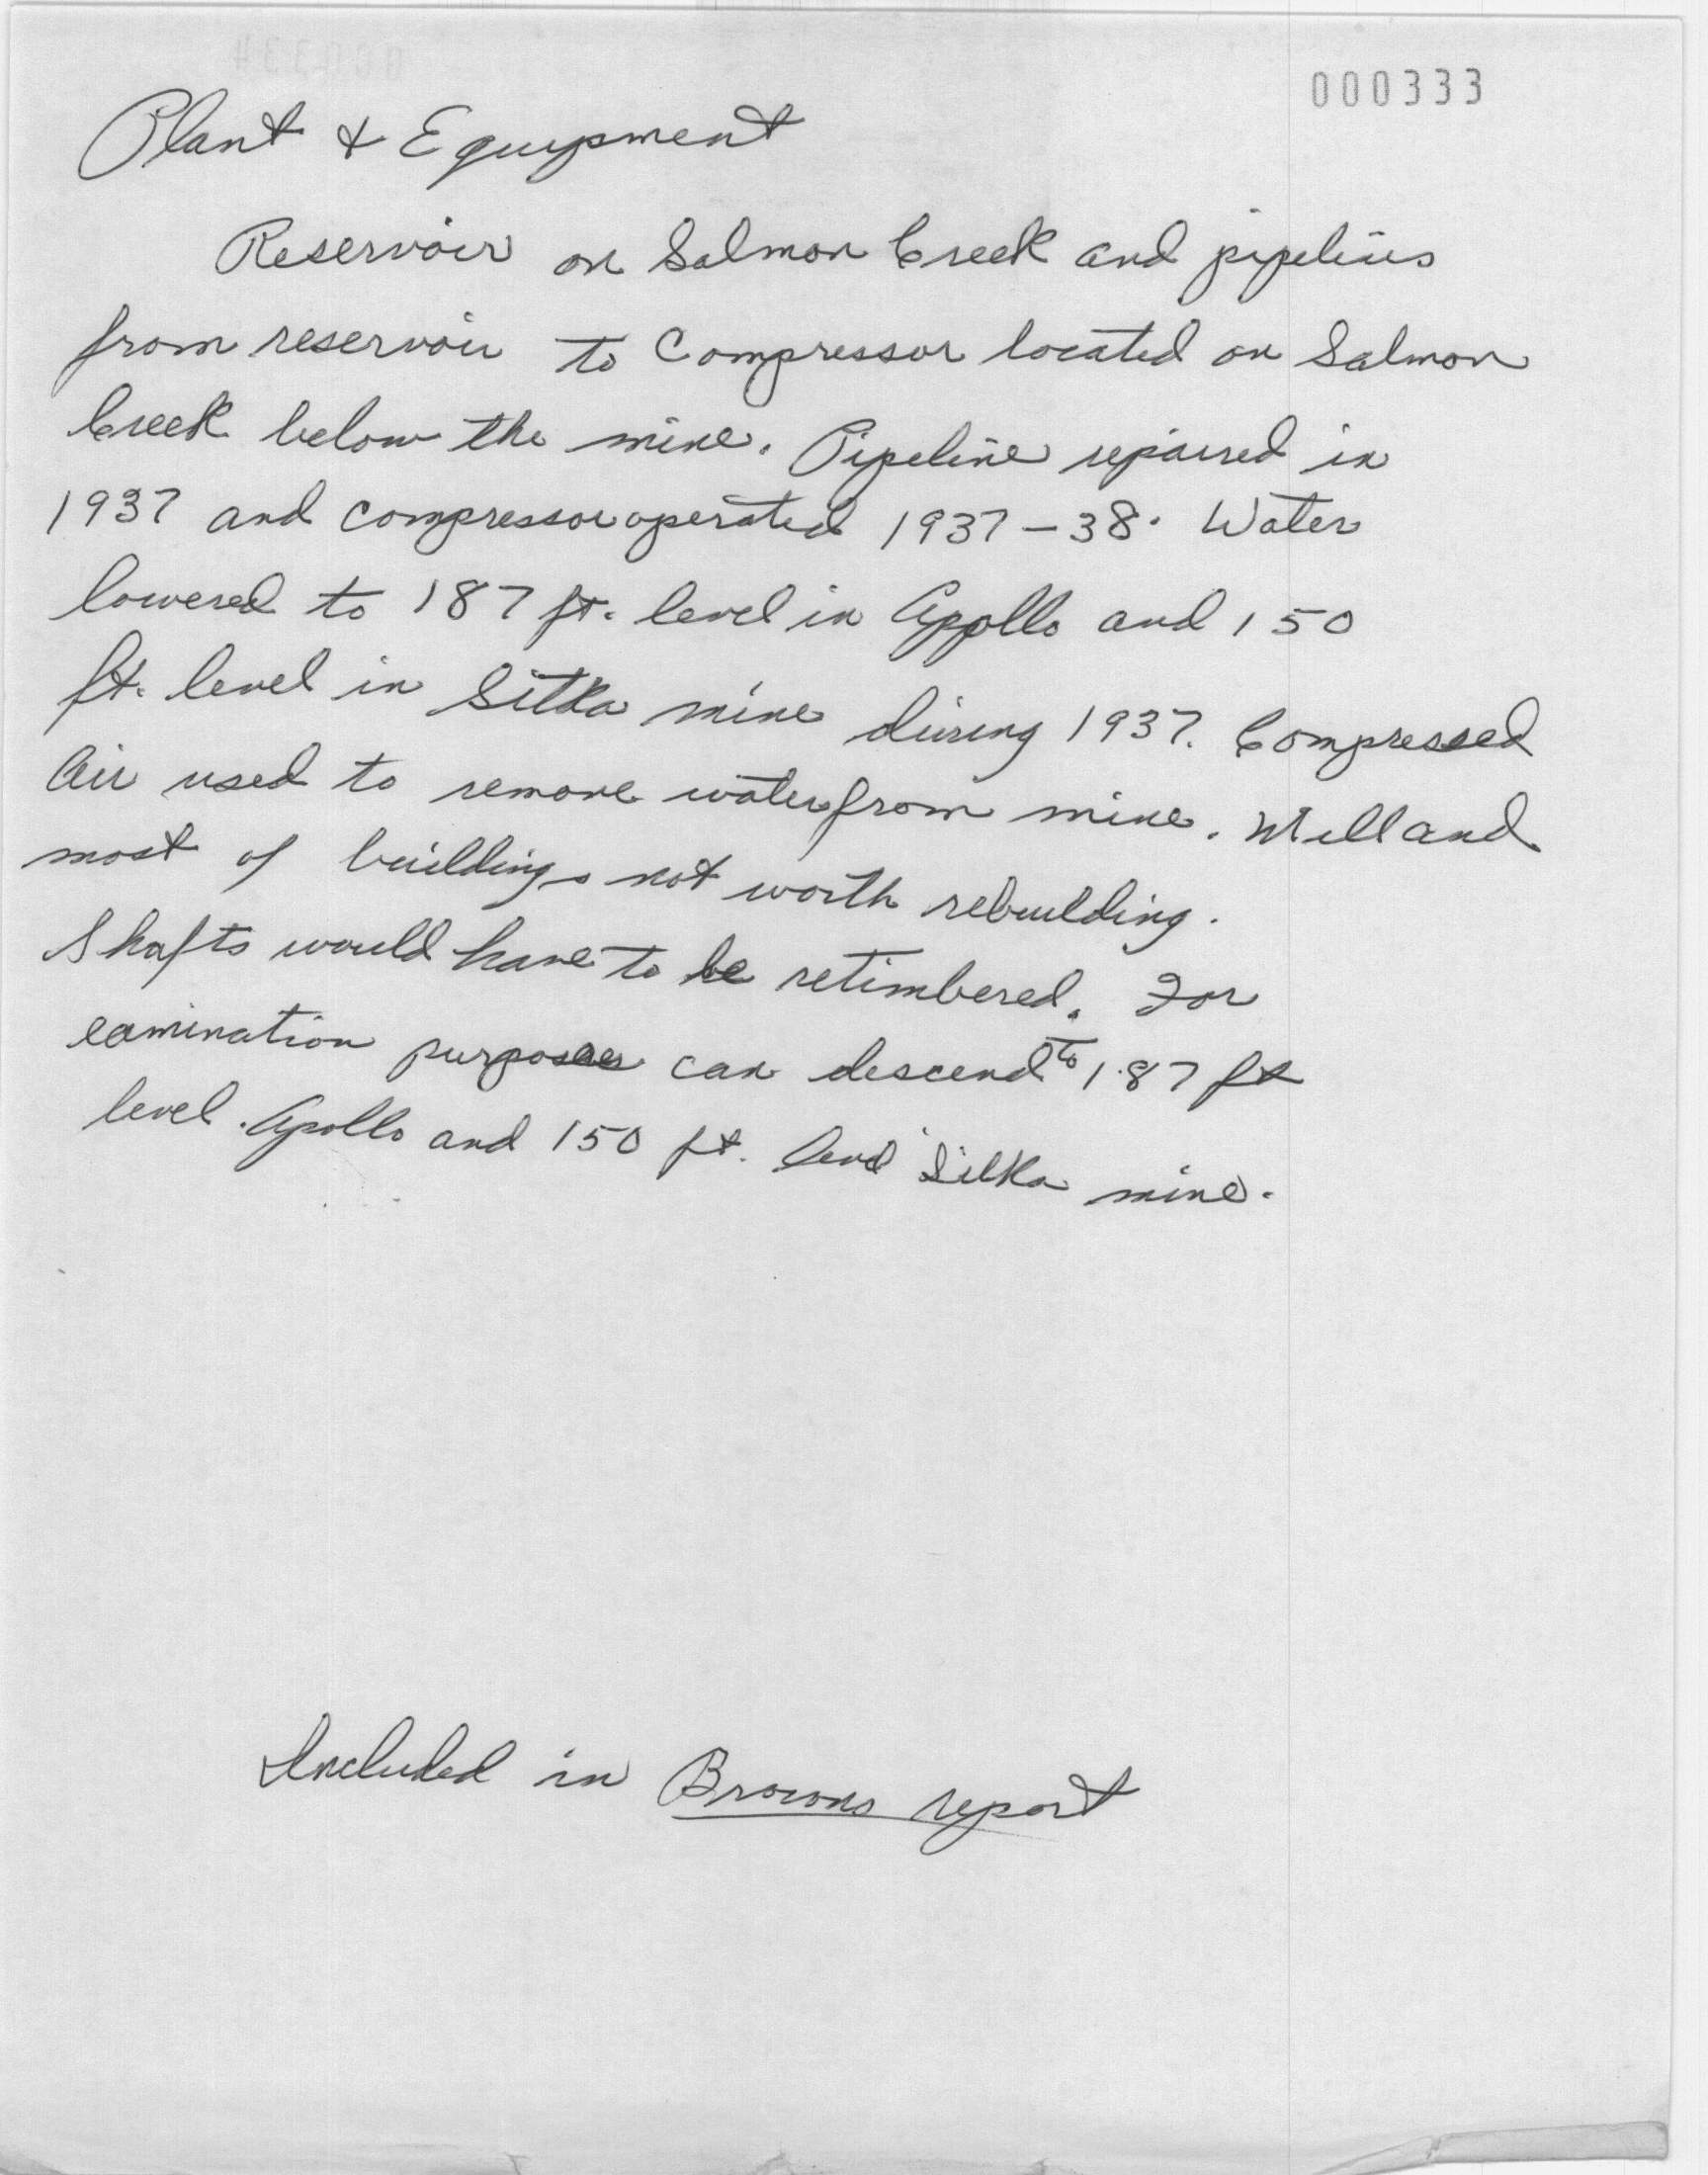 000333
Plant & Equipment
Reservoir on Salmon Creek and pipelines
from reservoir to Compressor located on Salmon
Creek below the mine. Pipeline repaired in
1937 and compressor operated 1937-38. Water
lowered to 187 ft. level in Appollo and 150
ft. level in Sitka mine during 1937. Compressed
Air used to remove water from mine. Mill and
most of buildings not worth rebuilding.
Shafts would have to be retimbered. For
eamination purposes can descend to 187 ft
level. Apollo and 150 ft. level Sitka mine.
Included in Browns report